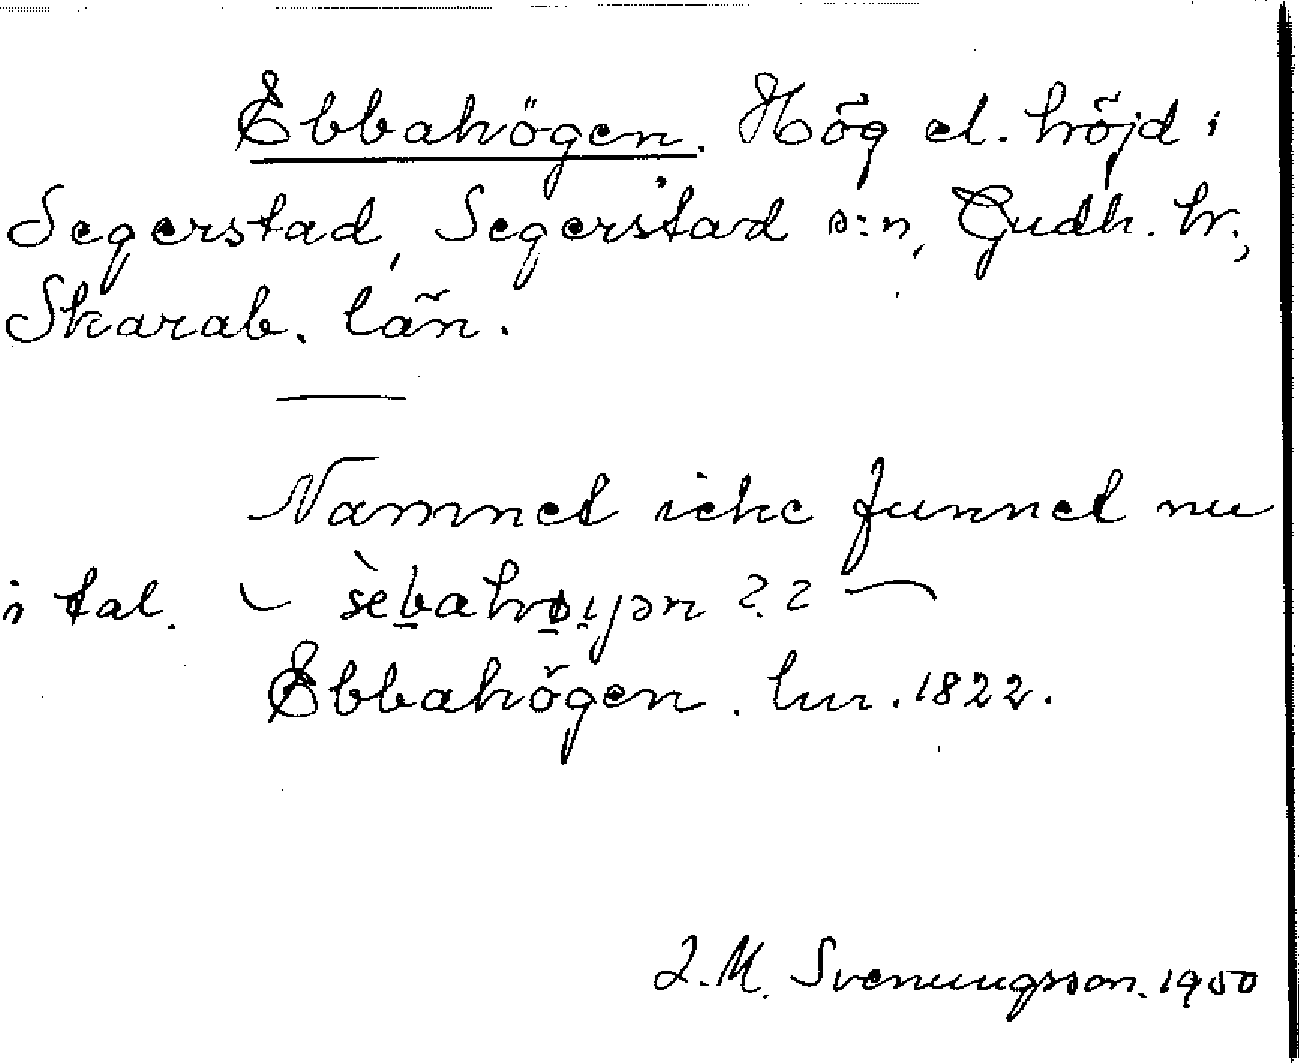 Ebbahögen. Hög el. höjd i
Segerstad, Segerstad s:n, Gudh. hr.,
Skarab. län.
Namnet icke funnet nu
i tal.
Ebbahögen. lm. 1822.
I. M. Svenungsson. 1950